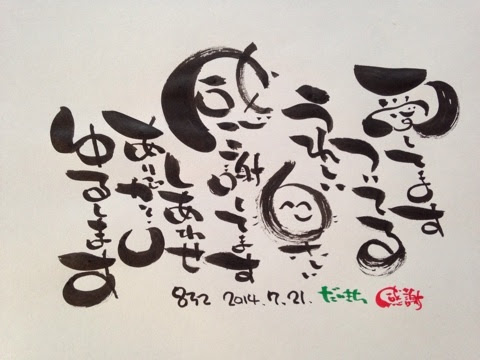 愛してます
ついてる
うれしい
楽しい
感謝してます
しあわせ
ありがとう
ゆるします
2014.7.21. 感謝